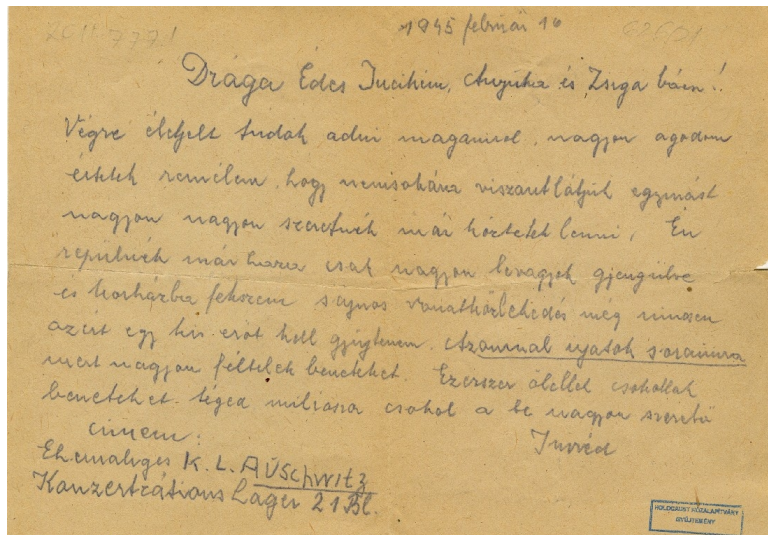 2011.777.1
1945 február 16
Drága Édes Jucikám, Anyuka és Zsiga bácsi!
Végre életjelt tudok adni magamról, nagyon agodom
értetek remélem, hogy nemsokára viszontlátjuk egymást
nagyon nagyon szeretnék már köztetek lenni, Én
repülnék már haza csak nagyon levagyok gyengülve
és korházba fekszem sajnos vonatközlekedés még nincsen
azért egy kis erőt kell gyüjtenem. Azonnal irjatok soraimra
mert nagyon féltelek beneteket. Ezerszer ölellek csokollak
beneteket. téged miliószor csokol a te nagyon szerető
címem:
Ehemaliges K. L. AUSCHWITZ
Konzertrátions Lager 21 Bl.
HOLOCAUST KÖZALAPÍTVÁNY
GYŰJTEMÉNY